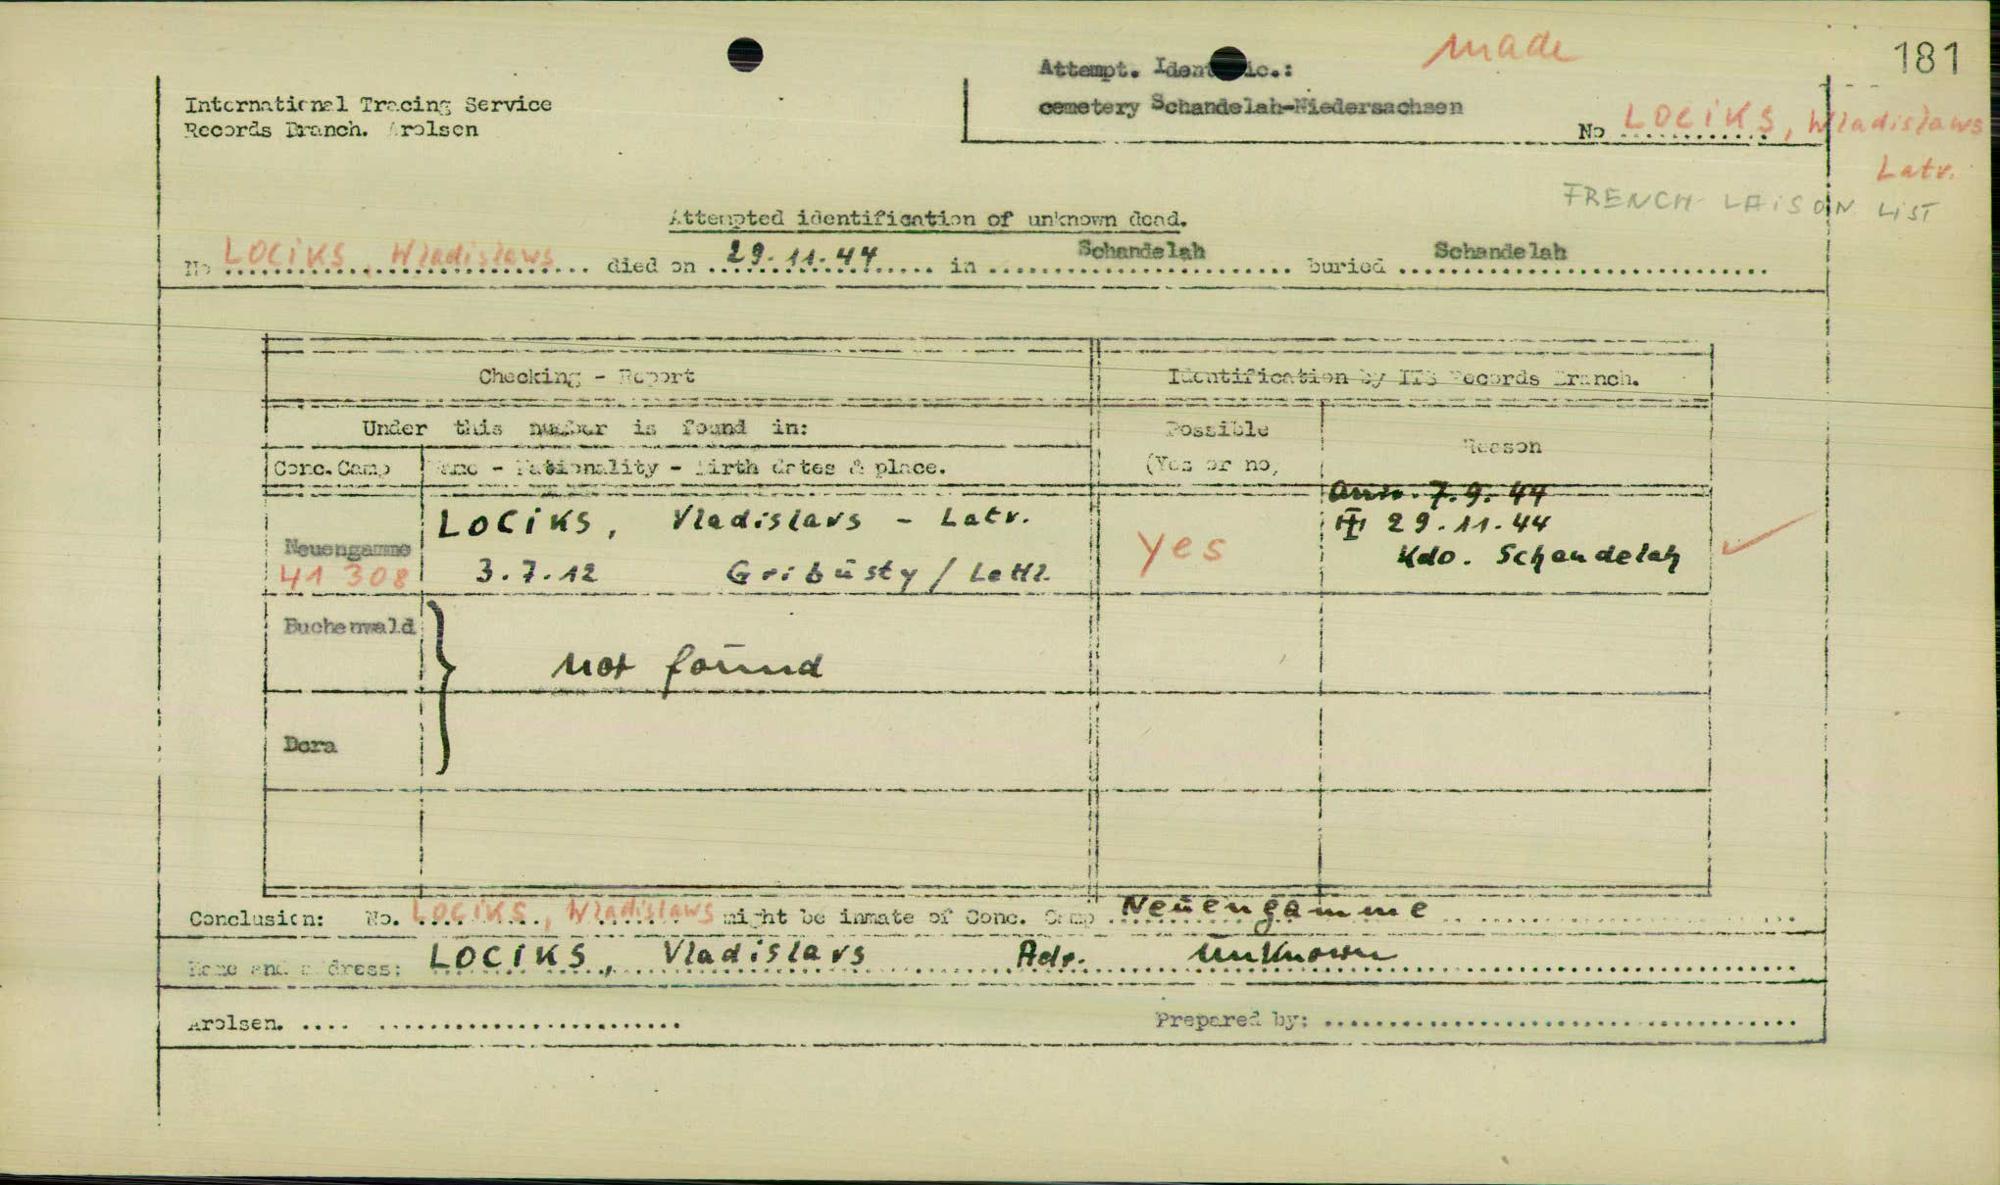 made
181
Attempt. Identific.:
cemetery Schandelah-Niedersachsen
International Tracing Service
Records Branch. Arolsen
No LOCIKS, Wladislaws
Latv.
FRENCH LAISON LIST
Attempted identification of unknown dead.
No LOCIKS, Wladislaws died on 29.11.44 in Schandelah buried Schandelah
Checking - Report
Identification by ITS Records Branch.
Under this number is found in:
Possible
(Yes or no)
Reason
Conc.Camp
Name - Nationality - Birth dates & place.
Neuengamme
41 308
LOCIKS, Vladislavs - Latv.
3.7.12 Gribūsty / Lettl.
Yes
7.9.44
29.11.44
Kdo. Schandelah
Buchenwald
not found
Dora
Conclusion: No. LOCIKS, Wladislaws might be inmate of Conc. Camp Neuengamme
Name and address: LOCIKS, Vladislavs Adr. unknown
Arolsen. .... ..........................
Prepared by: ....................................